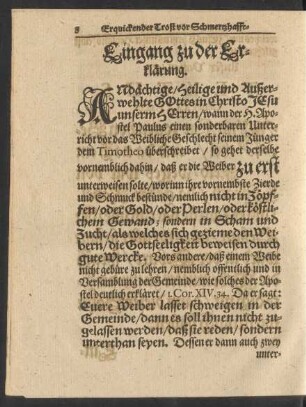 8 Erquickender Trost vor Schmertzhafft-
Eingang zu der Er-
klärung.
ANdächtige/Heilige und Außer-
wehlte GOttes in Christo JEsu
unserm HErren/wann der H. Apo-
stel Paulus einen sonderbaren Unter-
richt vor das Weibliche Geschlecht seinem Jünger
dem Timotheo überschreibet / so gehet derselbe
vornemblich dahin / daß er die Weiber zu erst
unterweisen solte/worinn ihre vornembste Zierde
und Schmuck bestünde/nemlich nicht in Zöpf-
fen/oder Gold/oder Perlen/oder köstli-
chem Gewand/ sondern in Scham und
Zucht/als welches sich gezieme den Wei-
bern/die Gottseeligkeit beweisen durch
gute Wercke. Vors andere/daß einem Weibe
nicht gebüre zu lehren/nemblich öffentlich und in
Versamblung der Gemeinde/wie solches der Apo-
stel deutlich erkläret/ 1. Cor. XIV. 34. Da er sagt:
Euere Weiber lasset schweigen in der
Gemeinde/dann es soll ihnen nicht zu-
gelassen werden/daß sie reden/ sondern
unterthan seyen. Dessen er dann auch zwey
unter-